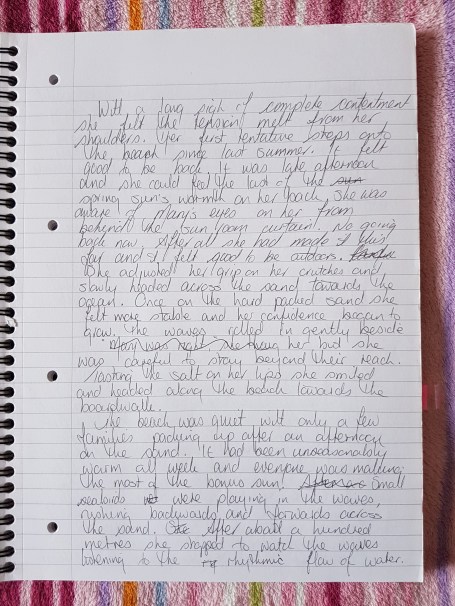 With a long sigh of complete contentment
she felt the tension melt from her
shoulders. Her first tentative steps onto
the beach since last summer. It felt
good to be back. It was late afternoon
and she could feel the last of the sun
spring sun's warmth on her back, she was
aware of Mary's eyes on her from
behind the sun room curtain. No going
back now. After all she had made it this
far and it felt good to be outdoors.
She adjusted her grip on her crutches and
slowly headed across the sand towards the
ocean. Once on the hard packed sand she
felt more stable and her confidence began to
grow. The waves rolled in gently beside
Mary was right she thug her but she
was careful to stay beyond their reach.
Tasting the salt on her lips she smiled
and headed along the beach towards the
boardwalk.
The beach was quiet with only a few
families packing up after an afternoon
on the sand. It had been unseasonably
warm all week and everyone was making
the most of the bonus sun. Small
seabirds were playing in the waves,
rushing backwards and forwards across
the sand. After about a hundred
metres she stopped to watch the waves
listening to the rhythmic flow of water.